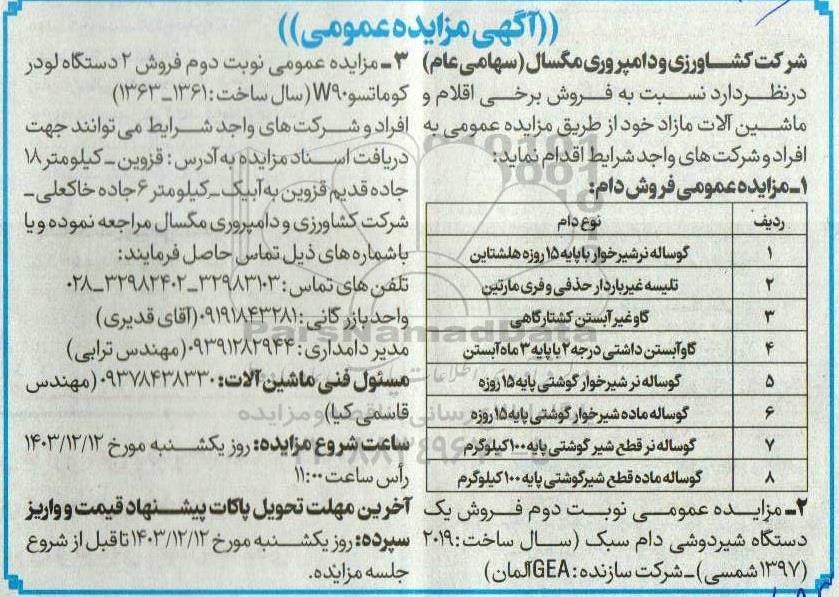 ((آگهی مزایده عمومی))
شرکت کشاورزی و دامپروری مگسال (سهامی عام)
درنظر دارد نسبت به فروش برخی اقلام و
ماشین آلات مازاد خود از طریق مزایده عمومی به
افراد و شرکت های واجد شرایط اقدام نماید:
۱ـ مزایده عمومی فروش دام:
ردیف نوع دام
۱ گوساله نر شیرخوار با پایه ۱۵ روزه هلشتاین
۲ تلیسه غیر باردار حذفی و فری مارتین
۳ گاو غیر آبستن کشتارگاهی
۴ گاو آبستن داشتی درجه ۲ با پایه ۳ ماه آبستن
۵ گوساله نر شیرخوار گوشتی پایه ۱۵ روزه
۶ گوساله ماده شیرخوار گوشتی پایه ۱۵ روزه
۷ گوساله نر قطع شیر گوشتی پایه ۱۰۰ کیلوگرم
۸ گوساله ماده قطع شیر گوشتی پایه ۱۰۰ کیلوگرم
۲ـ مزایده عمومی نوبت دوم فروش یک
دستگاه شیردوشی دام سبک (سال ساخت: ۲۰۱۹
(۱۳۹۷ شمسی) ـ شرکت سازنده: GEA آلمان)
۳ـ مزایده عمومی نوبت دوم فروش ۲ دستگاه لودر
کوماتسو W۹۰ (سال ساخت: ۱۳۶۱ـ۱۳۶۳)
افراد و شرکت های واجد شرایط می توانند جهت
دریافت اسناد مزایده به آدرس: قزوین ـ کیلومتر ۱۸
جاده قدیم قزوین به آبیک ـ کیلومتر ۶ جاده خاکعلی ـ
شرکت کشاورزی و دامپروری مگسال مراجعه نموده و یا
با شماره های ذیل تماس حاصل فرمایند:
تلفن های تماس: ۳۲۹۸۳۱۰۳ـ۳۲۹۸۲۴۰۲ـ۰۲۸
واحد بازرگانی: ۰۹۱۹۱۸۴۳۲۸۱ (آقای قدیری)
مدیر دامداری: ۰۹۳۹۱۲۸۲۹۴۴ (مهندس ترابی)
مسئول فنی ماشین آلات: ۰۹۳۷۸۴۳۸۳۳۰ (مهندس
قاسمی کیا)
ساعت شروع مزایده: روز یکشنبه مورخ ۱۴۰۳/۱۲/۱۲
رأس ساعت ۱۱:۰۰
آخرین مهلت تحویل پاکات پیشنهاد قیمت و واریز
سپرده: روز یکشنبه مورخ ۱۴۰۳/۱۲/۱۲ تا قبل از شروع
جلسه مزایده.
ParsNamadData